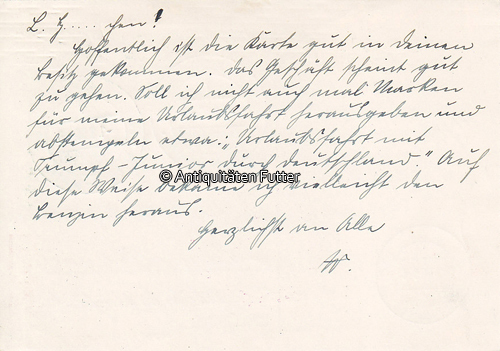 L. H..... chen!
Hoffentlich ist die Karte gut in deinen
Besitz gekommen. Das Geschäft scheint gut
zu gehen. Soll ich nicht auch mal Marken
für meine Urlaubsfahrt herausgeben und
abstempeln etwa. „Urlaubsfahrt mit
Trumpf-Junior durch Deutschland." Auf
diese Weise bekäme ich vielleicht den
Benzin heraus.
Herzlichst an Alle
W.
© Antiquitäten Futter